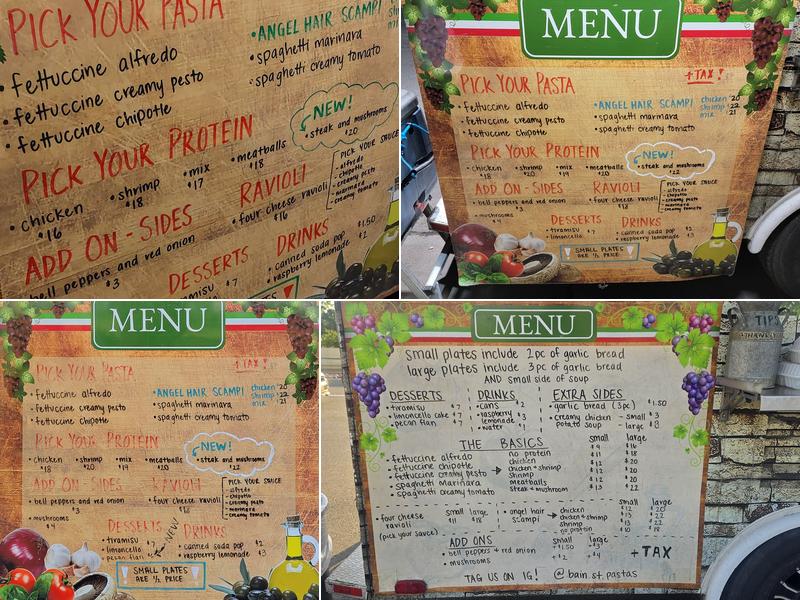 PICK YOUR PASTA
• fettuccine alfredo
• fettuccine creamy pesto
• fettuccine chipotle
• ANGEL HAIR SCAMPI
• spaghetti marinara
• spaghetti creamy tomato
NEW!
• steak and mushrooms
$20
PICK YOUR PROTEIN
• chicken $16
• shrimp $18
• mix $17
• meatballs $18
RAVIOLI
four cheese ravioli
$16
PICK YOUR SAUCE
- alfredo
- chipotle
- creamy pesto
- marinara
- creamy tomato
ADD ON - SIDES
bell peppers and red onion
$3
DESSERTS
tiramisu $7
DRINKS
• canned soda pop $1.50
• raspberry lemonade $2
MENU
PICK YOUR PASTA
+ TAX!
• fettuccine alfredo
• fettuccine creamy pesto
• fettuccine chipotle
• ANGEL HAIR SCAMPI
• spaghetti marinara
• spaghetti creamy tomato
chicken $20
shrimp $22
mix $21
PICK YOUR PROTEIN
• chicken $18
• shrimp $20
• mix $19
• meatballs $20
NEW!
• steak and mushrooms
$22
ADD ON - SIDES
• bell peppers and red onion
$3
• mushrooms
$4
RAVIOLI
• four cheese ravioli
$18
PICK YOUR SAUCE
- alfredo
- chipotle
- creamy pesto
- marinara
- creamy tomato
DESSERTS
• tiramisu $7
• limoncello
DRINKS
• canned soda pop $2
• raspberry lemonade $3
SMALL PLATES
ARE ½ PRICE
MENU
PICK YOUR PASTA
+ TAX!
• fettuccine alfredo
• fettuccine creamy pesto
• fettuccine chipotle
• ANGEL HAIR SCAMPI
• spaghetti marinara
• spaghetti creamy tomato
chicken $20
shrimp $22
mix $21
PICK YOUR PROTEIN
• chicken $18
• shrimp $20
• mix $19
• meatballs $20
NEW!
• steak and mushrooms
$22
ADD ON - SIDES
• bell peppers and red onion
$3
• mushrooms
$4
RAVIOLI
• four cheese ravioli
$18
PICK YOUR SAUCE
- alfredo
- chipotle
- creamy pesto
- marinara
- creamy tomato
DESSERTS
• tiramisu
• limoncello
• pecan flan
NEW
DRINKS
• canned soda pop $2
• raspberry lemonade $3
SMALL PLATES
ARE ½ PRICE
MENU
small plates include 2pc of garlic bread
large plates include 3pc of garlic bread
AND small side of soup
DESSERTS
• tiramisu $7
• limoncello cake $7
• pecan flan $7
DRINKS
• cans $2
• raspberry lemonade $3
• water $1
EXTRA SIDES
• garlic bread (3pc) $1.50
• creamy chicken - small $3
potato soup - large $8
THE BASICS
small large
• fettuccine alfredo
• fettuccine chipotle
• fettuccine creamy pesto
• spaghetti marinara
• spaghetti creamy tomato
no protein $9 $16
chicken $11 $18
chicken + shrimp $12 $20
shrimp $12 $20
meatballs $12 $20
steak + mushrooms $13 $22
• four cheese ravioli
(pick your sauce)
small large
$11 $18
• angel hair scampi
small large
chicken $12 $20
chicken + shrimp $13 $22
shrimp
no protein
ADD ONS
• bell peppers + red onion
• mushrooms
small large
+1.50 +$3
+$2 +$4
+ TAX
TAG US ON IG! @bain.st.pastas
TIPS
THANKS